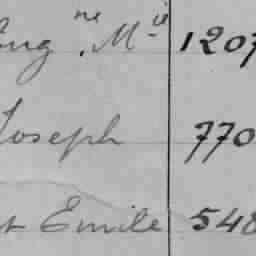 Eug.ne Mie 1207
Joseph 770
Emile 548